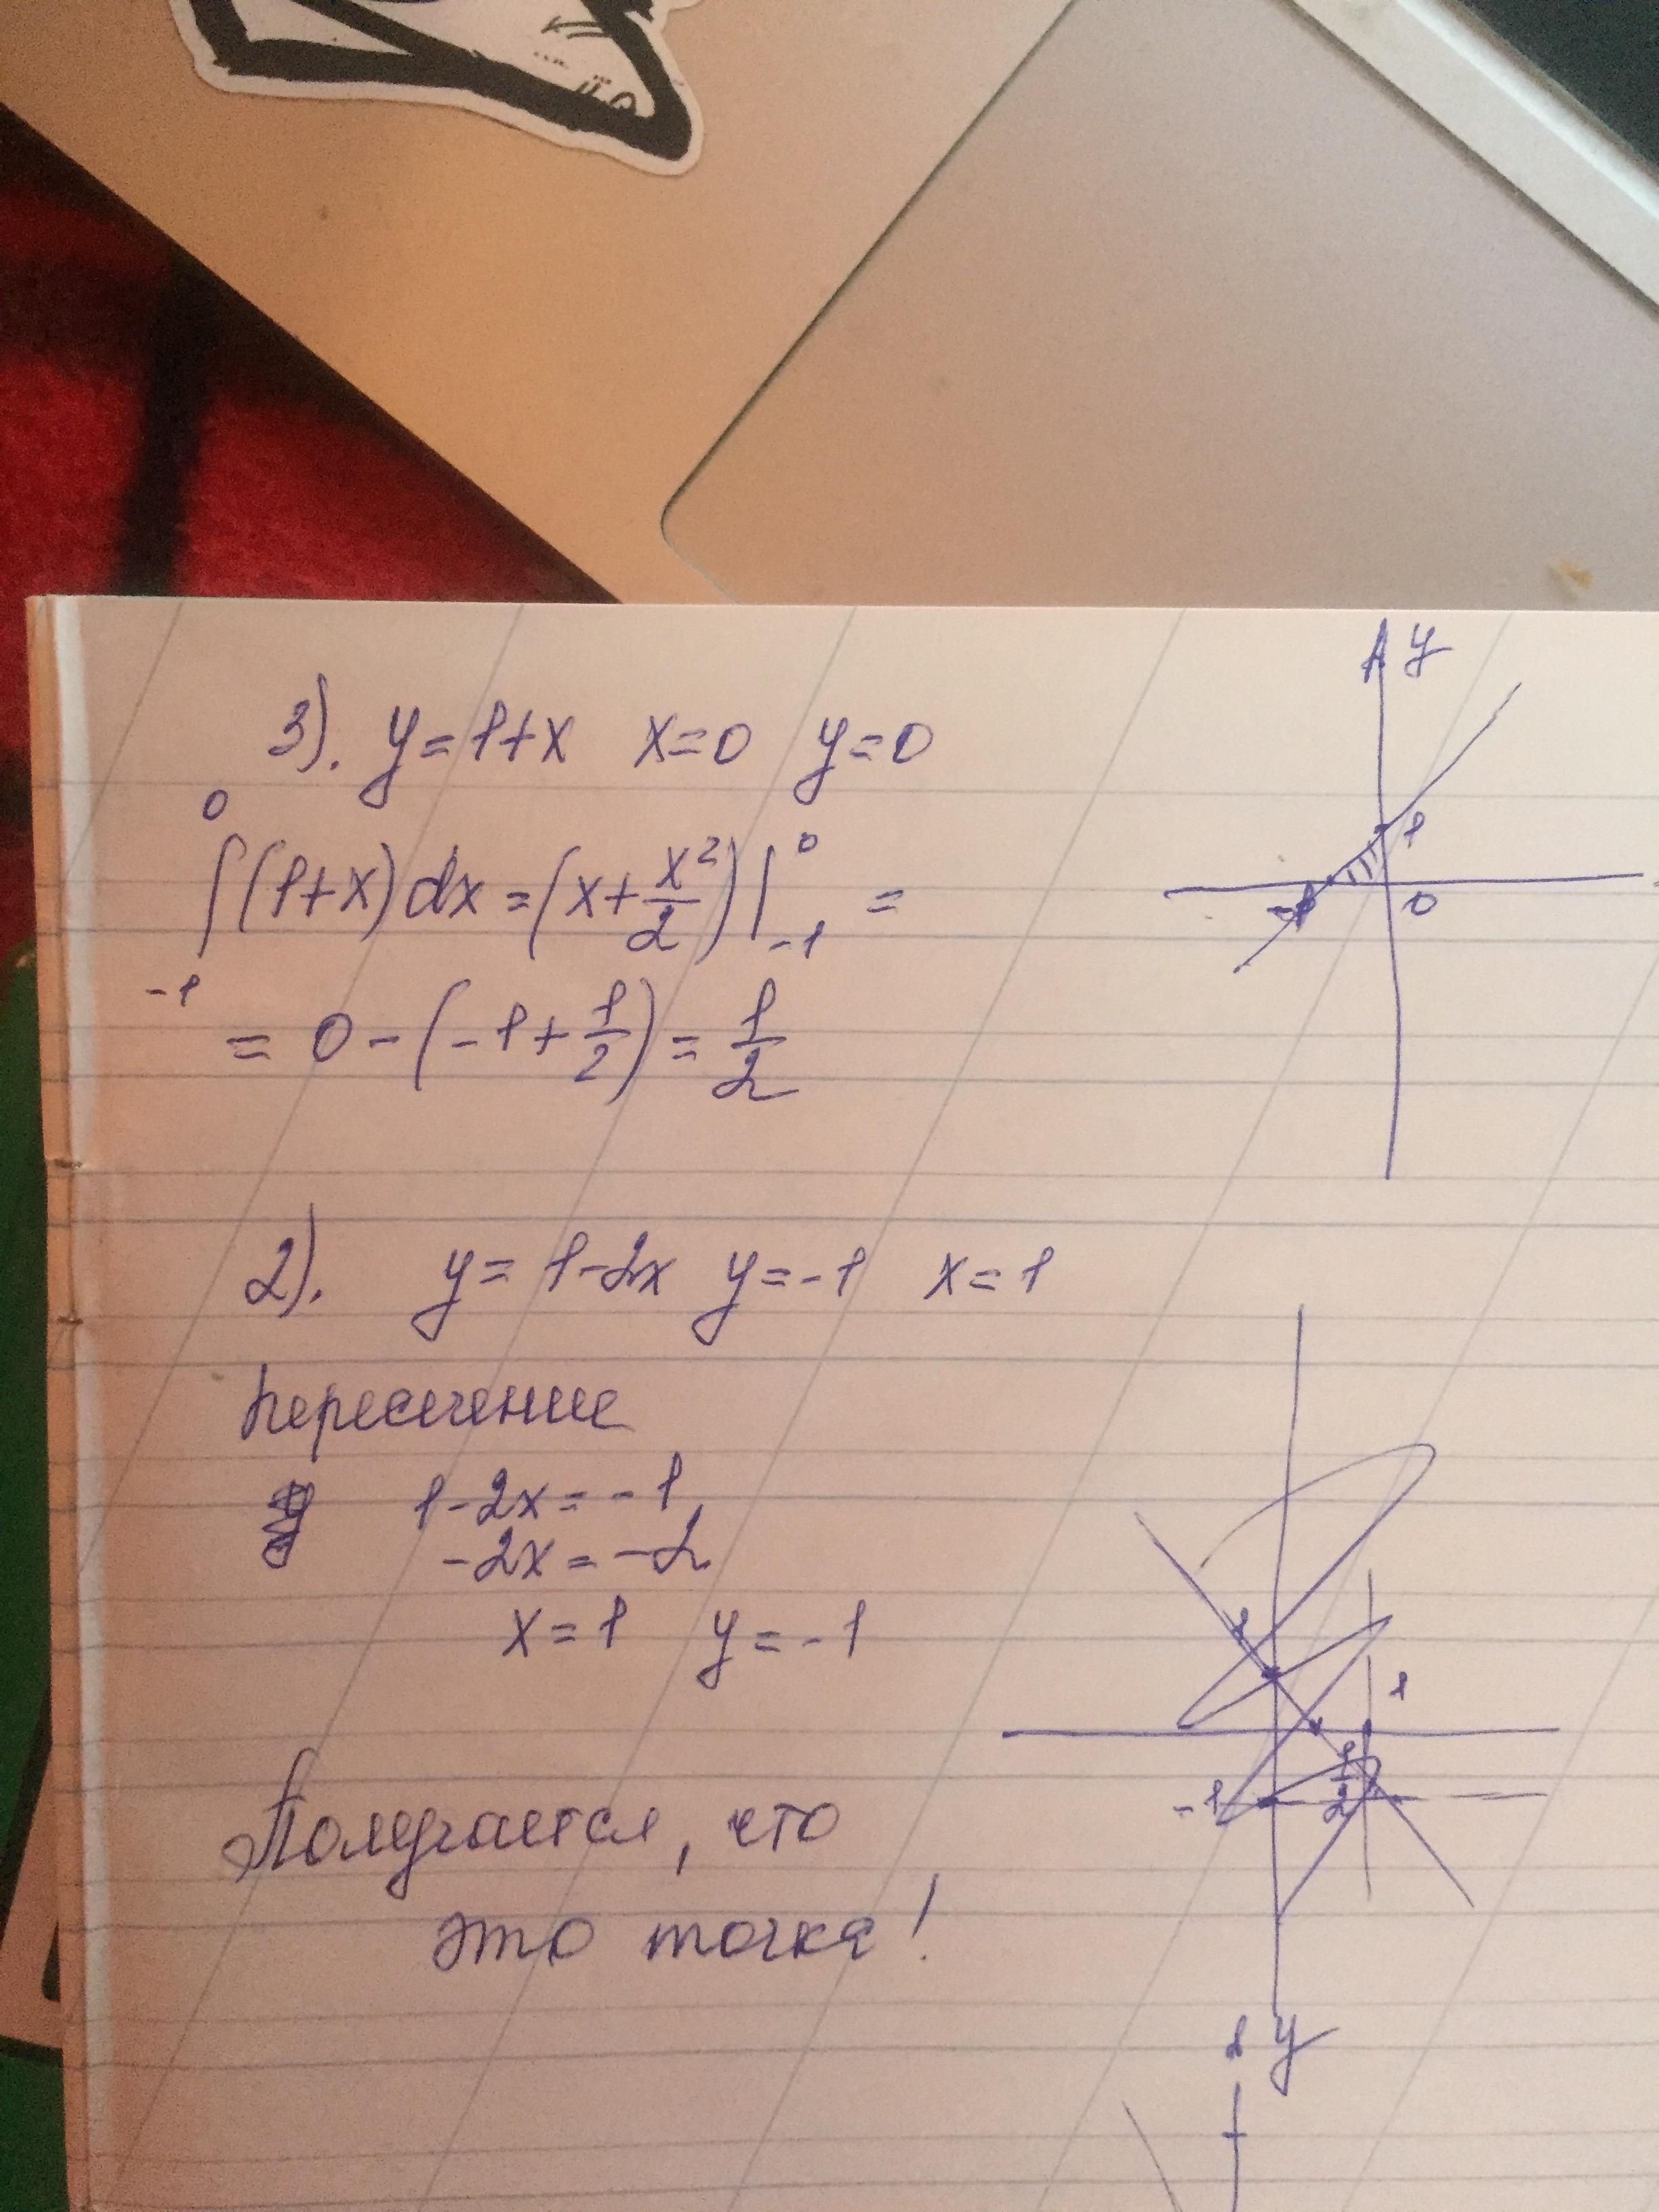 3). y=1+x x=0 y=0
0
∫(1+x)dx=(x+x²/2)|⁰₋₁ =
-1
= 0-(-1+1/2)=1/2
2). y=1-2x y=-1 x=1
Пересечение
1-2x=-1
-2x=-2
x=1 y=-1
Получается, что
это точка!
y
1
-1
0
1
1
-1
1/2
y